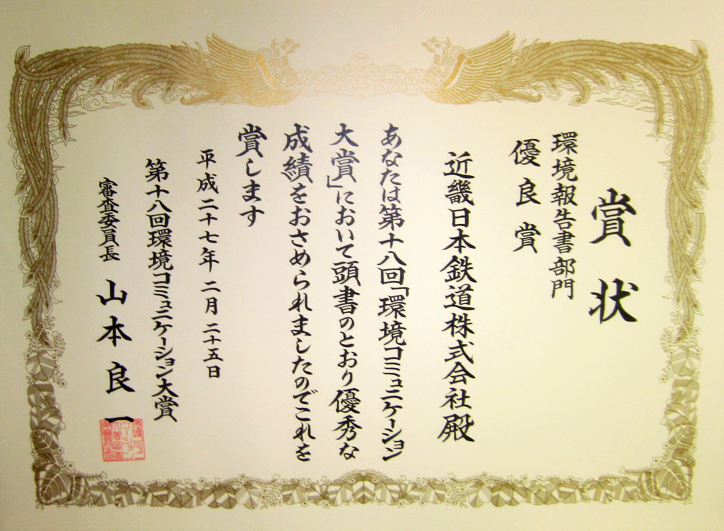 賞状
環境報告書部門
優良賞
近畿日本鉄道株式会社殿
あなたは第十八回「環境コミュニケーション
大賞」において頭書のとおり優秀な
成績をおさめられましたのでこれを
賞します
平成二十七年二月二十五日
第十八回環境コミュニケーション大賞
審査委員長
山本良一